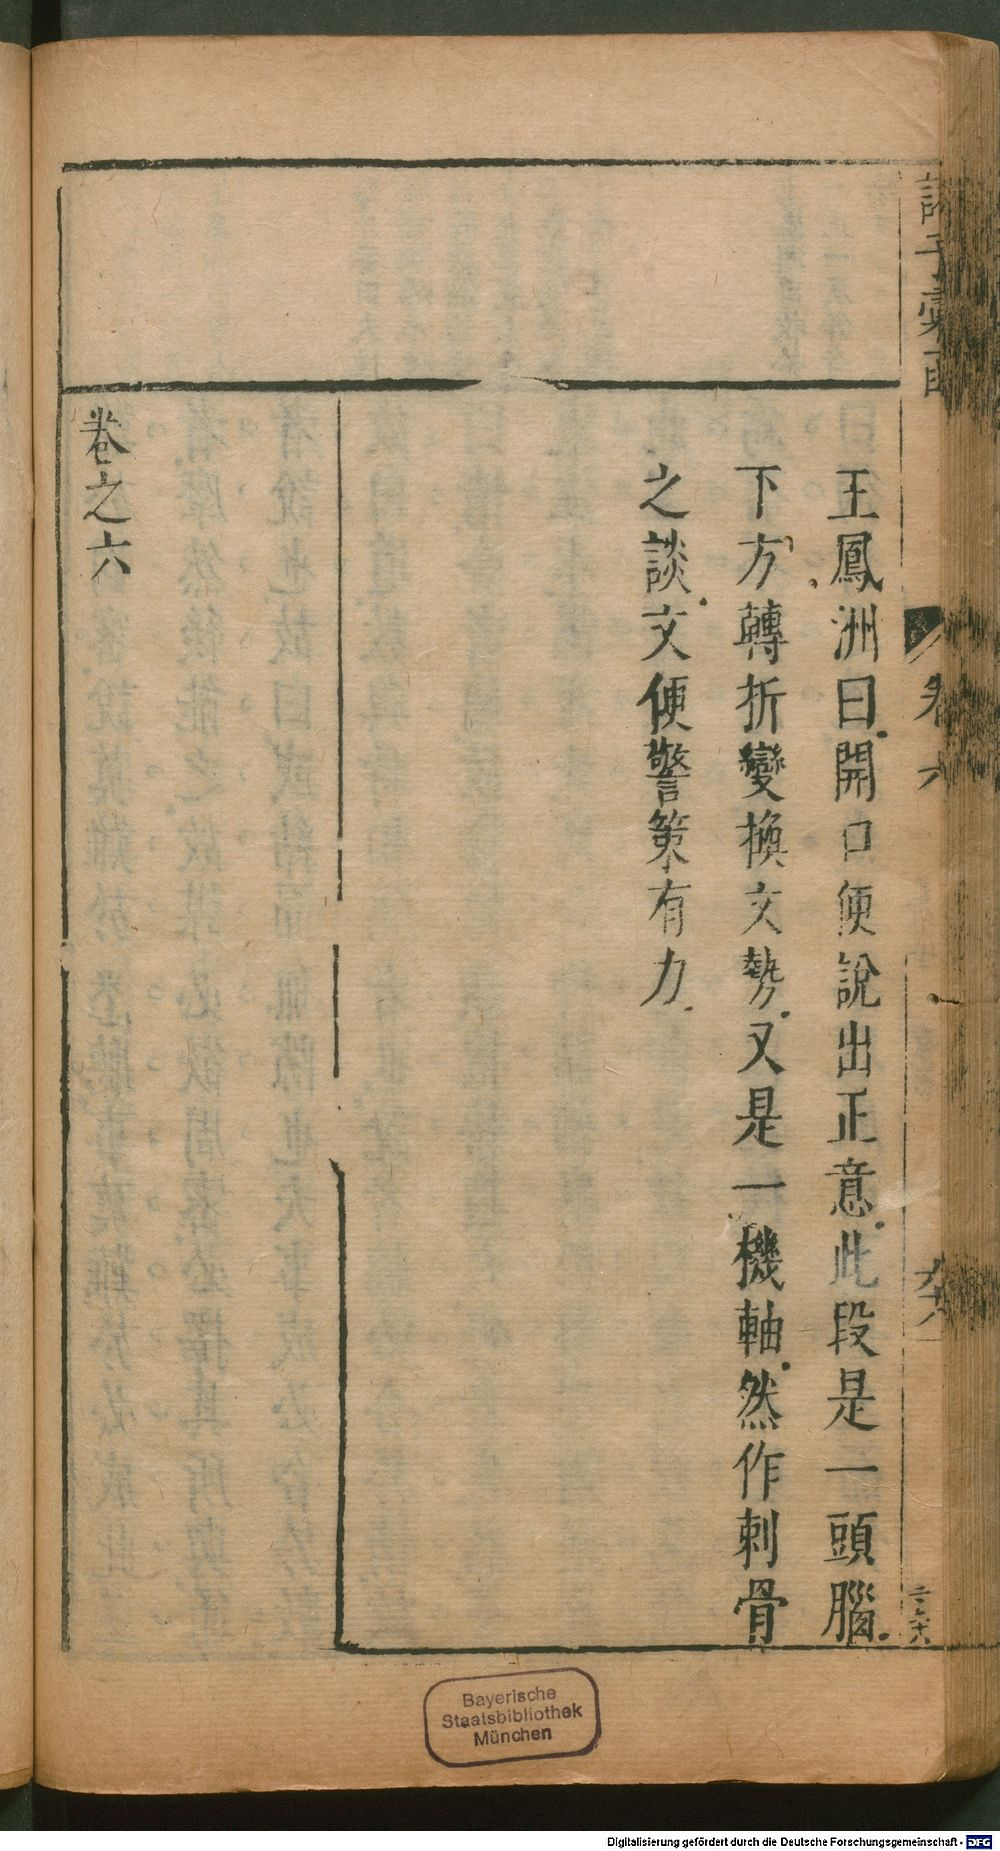 諸子彙函
卷六
六十八
王鳳洲曰開口便說出正意此段是一頭腦
下方轉折變換文勢又是一機軸然作刺骨
之談文便警策有力
卷之六
Bayerische
Staatsbibliothek
München
Digitalisierung gefördert durch die Deutsche Forschungsgemeinschaft - DFG